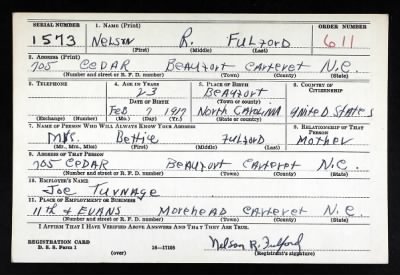 SERIAL NUMBER 1. NAME (Print) ORDER NUMBER
1573 NELSON R. FULFORD 611
(First) (Middle) (Last)
2. ADDRESS (Print)
705 CEDAR BEAUFORT CARTERET N.C.
(Number and street or R. F. D. number) (Town) (County) (State)
3. TELEPHONE 4. AGE IN YEARS 5. PLACE OF BIRTH 6. COUNTRY OF CITIZENSHIP
23 BEAUFORT
(Town or county)
DATE OF BIRTH
FEB 7 1917 NORTH CAROLINA UNITED STATES
(Exchange) (Number) (Mo.) (Day) (Yr.) (State or country)
7. NAME OF PERSON WHO WILL ALWAYS KNOW YOUR ADDRESS 8. RELATIONSHIP OF THAT PERSON
MRS. BETTIE FULFORD MOTHER
(Mr., Mrs., Miss) (First) (Middle) (Last)
9. ADDRESS OF THAT PERSON
705 CEDAR BEAUFORT CARTERET N.C.
(Number and street or R. F. D. number) (Town) (County) (State)
10. EMPLOYER'S NAME
JOE TURNAGE
11. PLACE OF EMPLOYMENT OR BUSINESS
11th & EVANS MOREHEAD CARTERET N.C.
(Number and street or R. F. D. number) (Town) (County) (State)
I AFFIRM THAT I HAVE VERIFIED ABOVE ANSWERS AND THAT THEY ARE TRUE.
REGISTRATION CARD
D. S. S. Form 1 (over) 16—17105 Nelson R. Fulford
(Registrant's signature)